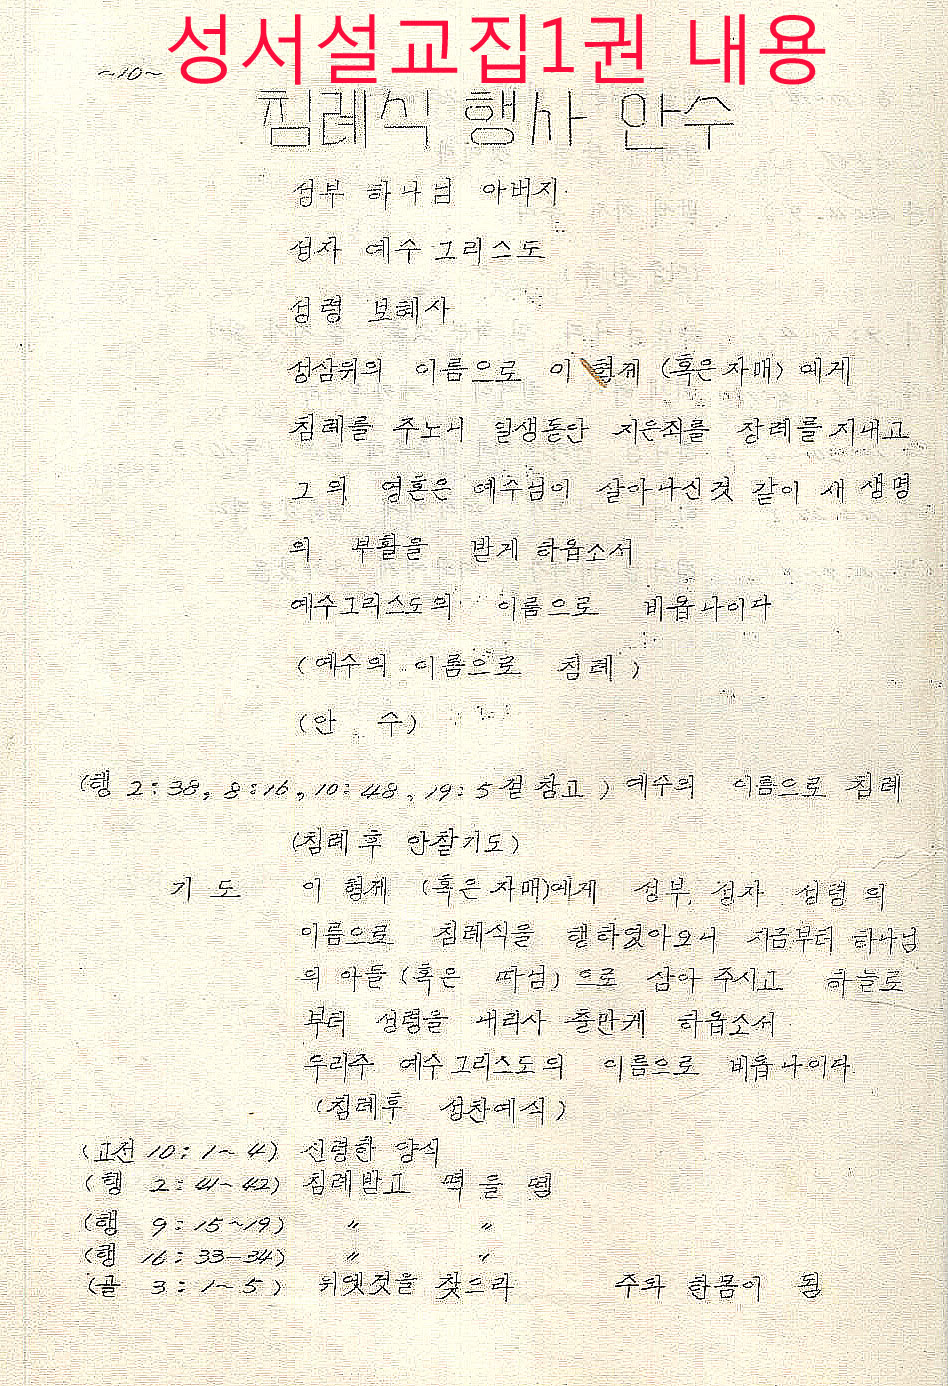 성서설교집1권 내용
~10~
침례식 행사 안수
성부 하나님 아버지
성자 예수 그리스도
성령 보혜사
성삼위의 이름으로 이 형제 (혹은 자매) 에게
침례를 주노니 일생동안 지은죄를 장례를 지내고
그의 영혼은 예수님이 살아나신것 같이 새 생명
의 부활을 받게 하옵소서
예수그리스도의 이름으로 비옵나이다
(예수의 이름으로 침례)
(안 수)
(행 2:38, 8:16, 10:48, 19:5 참고) 예수의 이름으로 침례
(침례후 안찰기도)
기 도 이 형제 (혹은 자매)에게 성부, 성자 성령의
이름으로 침례식을 행하였아오니 지금부터 하나님
의 아들 (혹은 따님)으로 삼아 주시고 하늘로
부터 성령을 내리사 충만케 하옵소서
우리주 예수 그리스도의 이름으로 비옵나이다
(침례후 성찬예식)
(고전 10:1~4) 신령한 양식
(행 2:41~42) 침례받고 떡을 뗌
(행 9:15~19) 〃 〃
(행 16:33-34) 〃 〃
(골 3:1~5) 위엣것을 찾으라 주와 한몸이 됨